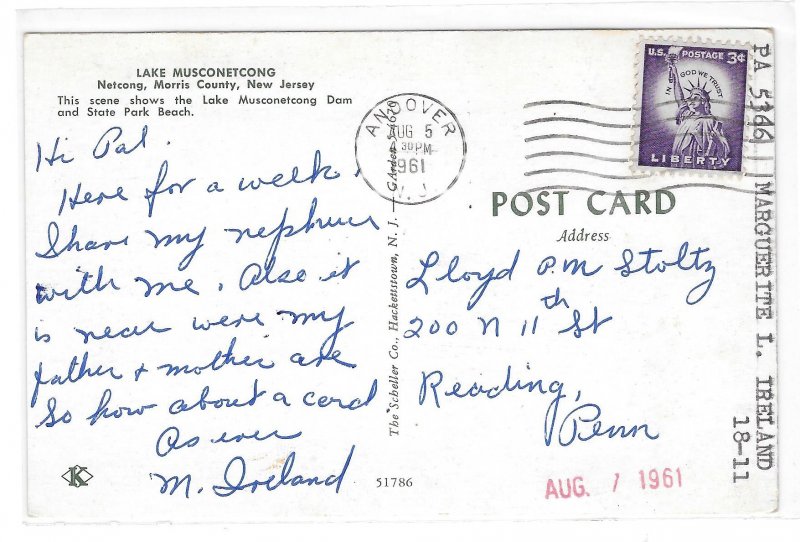 LAKE MUSCONETCONG
Netcong, Morris County, New Jersey
This scene shows the Lake Musconetcong Dam
and State Park Beach.
Hi Pal.
Here for a week.
Share my nephews
with me. Also it
is near were my
father + mother are
So how about a card
As ever
M. Ireland
K
51786
The Scheller Co., Hackettstown, N. J. — GArden
ANDOVER
AUG 5
30PM
1961
N. J.
U.S. POSTAGE 3¢
IN GOD WE TRUST
LIBERTY
POST CARD
Address
Lloyd P.M Stoltz
200 N 11th St
Reading,
Penn
AUG. 7 1961
PA 5366 MARGUERITE L. IRELAND
18-11